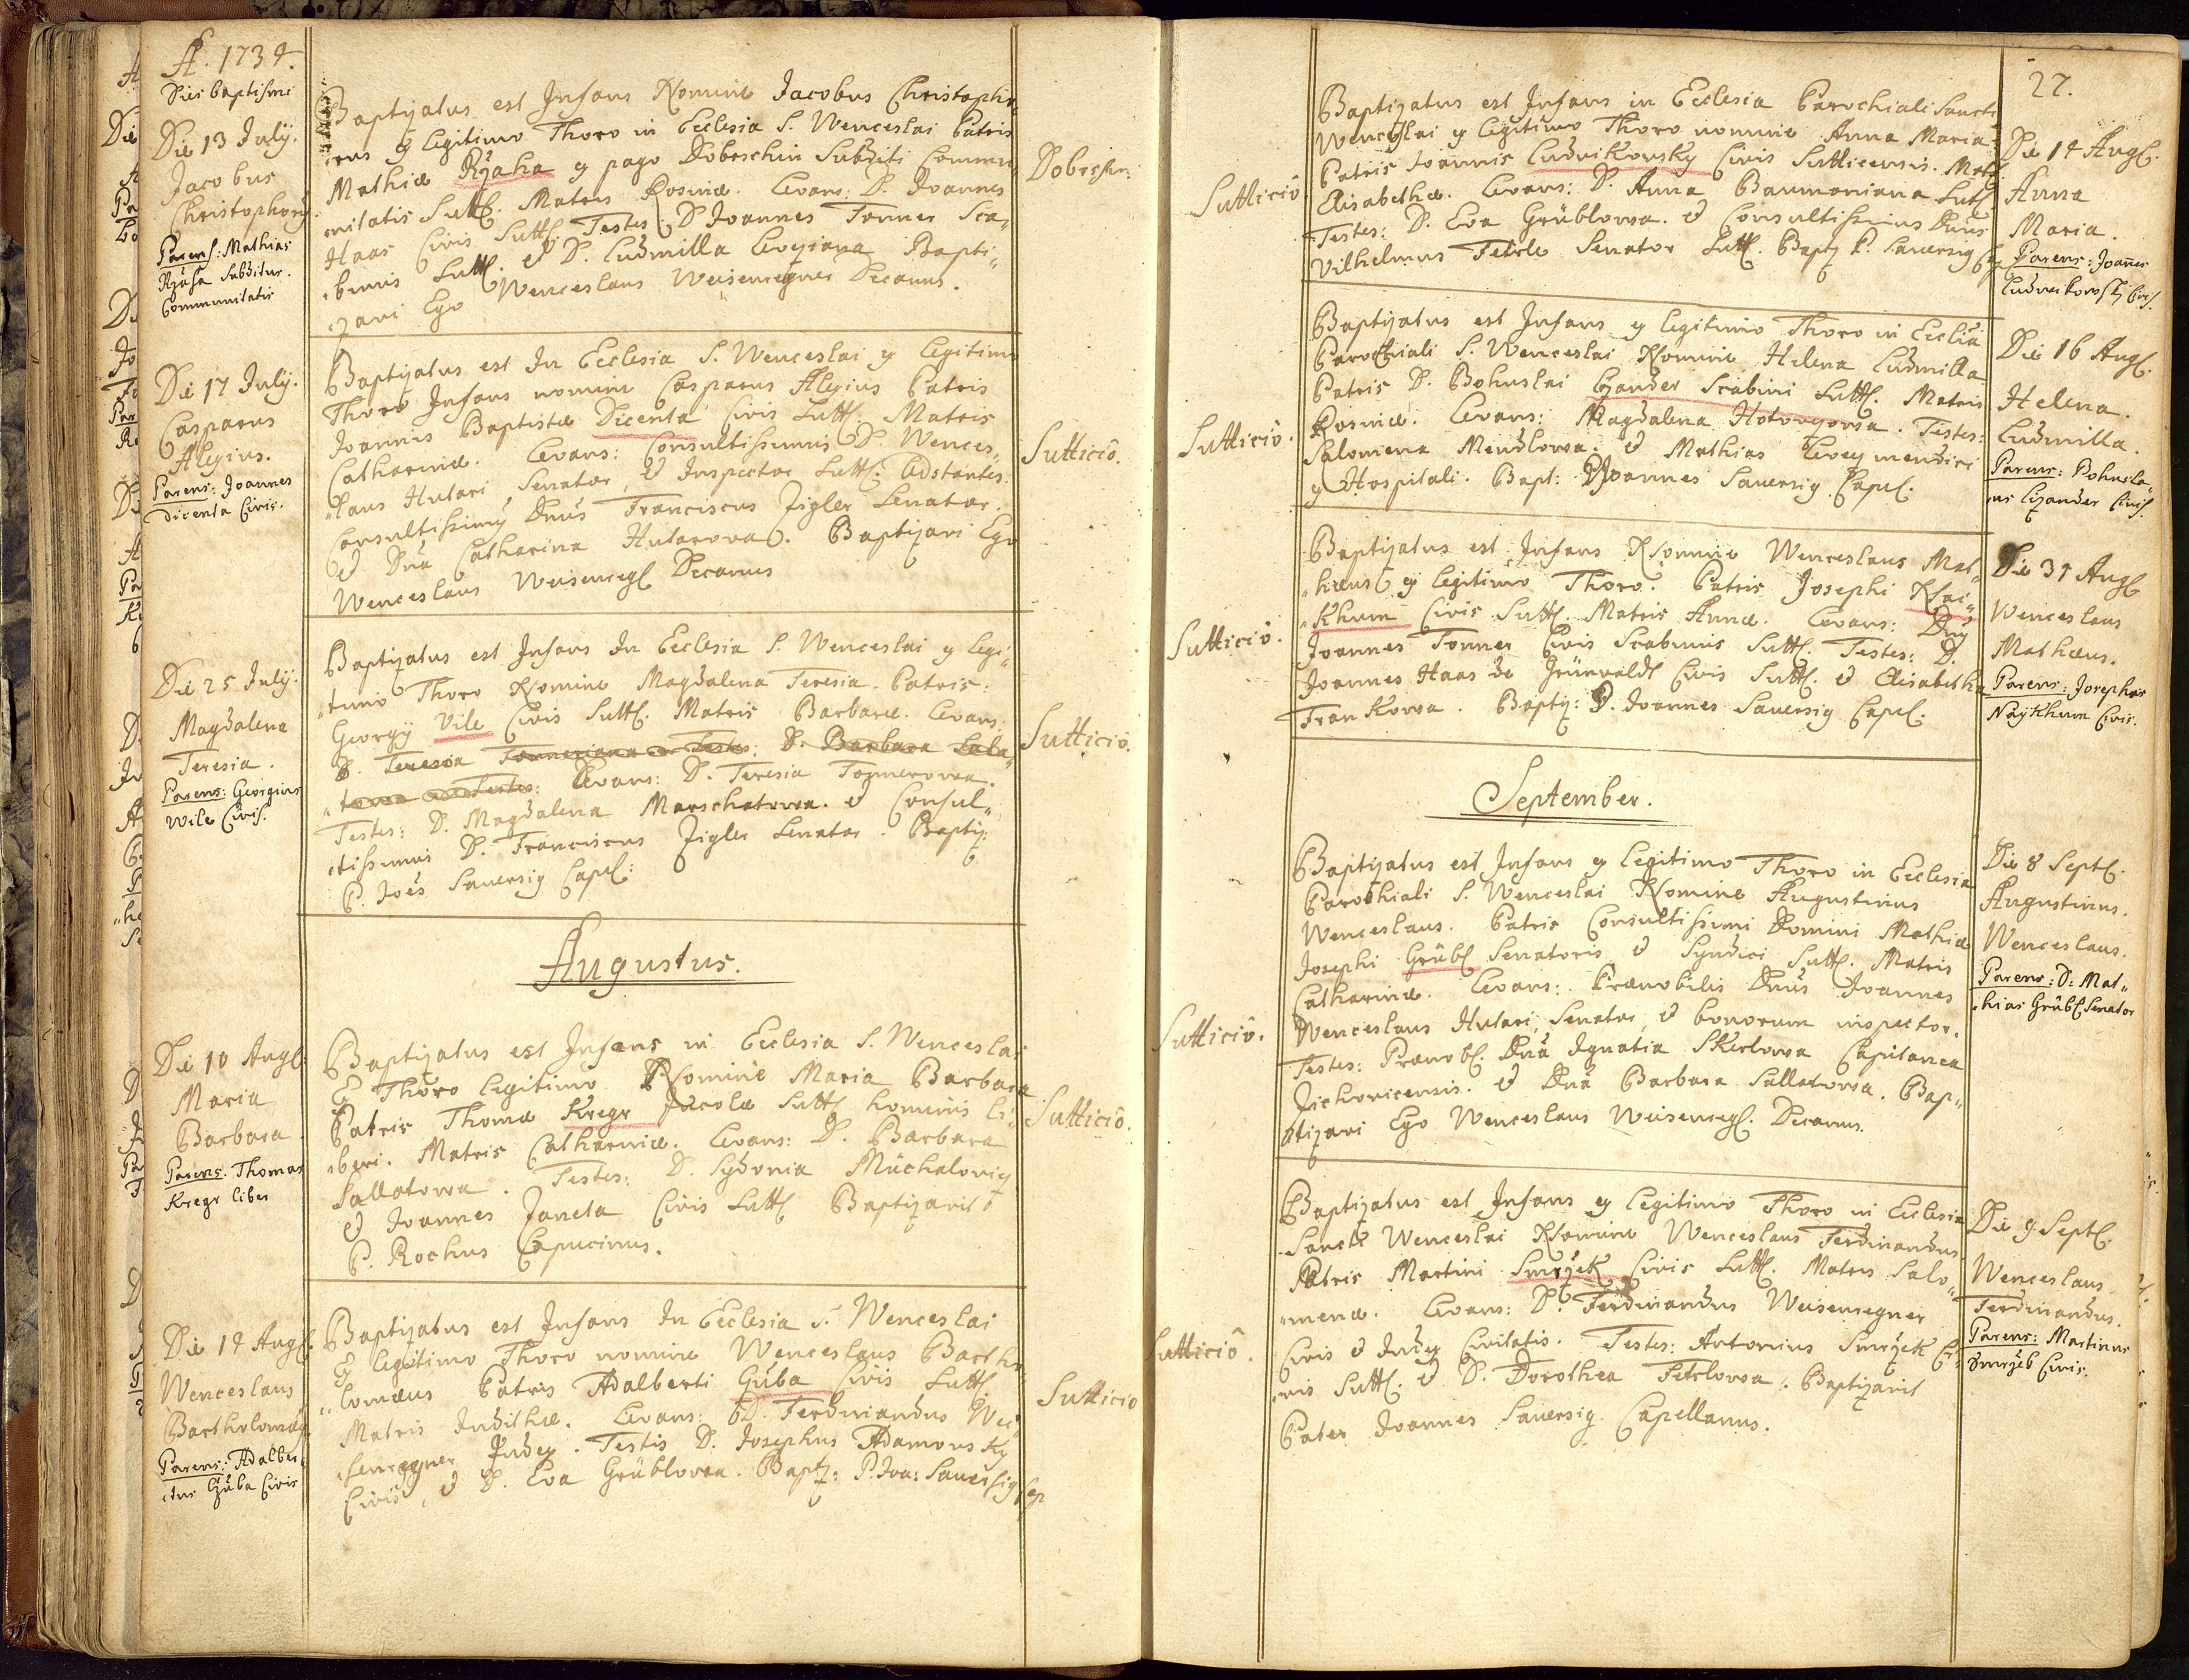 A. 1734.
Dies baptismi
Die 13 July.
Jacobus
Christophorus
Parens: Mathias
Rzaha Subditus
Communitatis
Baptizatus est Infans Nomine Jacobus Christopho„
rus ex legitimo Thoro in Ecclesia S. Wenceslai Patris
Mathiæ Rzaha ex pago Dobrschin Subditi Commu„
nitatis Sutt. Matris Rosinæ. Levans: D. Joannes
Haas Civis Sutt. Testes D Joannes Tonner Sca„
binus Sutt. et D. Ludmilla Bapti„
zavi Ego Wenceslaus Weisenregner Decanus.
Dobrschin:
Die 17 July.
Casparus
Alexius.
Parens: Joannes
Dicenta Civis.
Baptizatus est In Ecclesia S. Wenceslai ex legitimo
Thoro Infans nomine Casparus Alexius Patris
Joannis Baptistæ Dicenta Civis Sutt. Matris
Catharinæ. Levans: Consultissimus D. Wences„
„laus Hutari Senator, et Inspector Sutt. Adstantes:
Consultissimus Dnus Franciscus Zigler Senator.
et Dna Catharina Hutarova. Baptizavi Ego
Wenceslaus Weisenregl Decanus
Sutticiô.
Die 25 July.
Magdalena
Teresia.
Parens: Georgius
Wile Civis.
Baptizatus est Infans In Ecclesia S. Wenceslai ex legi„
„timo Thoro Nomine Magdalena Teresia. Patris:
Georgÿ Vile Civis Sutt. Matris Barbaræ. Levans:
D. Teresia Tonneriana Testes: D. Barbara Sala„
„towa Testes: Levans: D. Teresia Tonnerowa.
Testes: D. Magdalena Marschatowa. et Consul„
„tissimus D. Franciscus Zigler Senator. Baptiz:
P. Joes Sauersig Capel:
Sutticiô.
Augustus.
Die 10 Aug.
Maria
Barbara
Parens: Thomas
Kregr liber
Baptizatus est Infans in Ecclesia S. Wenceslai
Ex Thoro legitimo Nomine Maria Barbara
Patris Thomæ Kregr Incolæ Sutt. hominis li„
beri. Matris Catharinæ. Levans: D. Barbara
Sallatowa. Testes: D. Sydonia Müchalowiz
et Joannes Janeta Civis Sutt Baptizavit
P. Rochus Capucinus.
Sutticiô.
Die 14 Aug.
Wenceslaus
Bartholomæus
Parens: Adalber„
„tus Guba Civis
Baptizatus est Infans In Ecclesia S. Wenceslai
Ex legitimo Thoro nomine Wenceslaus Bartho„
„lomæus Patris Adalberti Guba Civis Sutt.
Matris Judithæ. Levans: D. Ferdinandus Wei„
senregner Judex. Testis D. Josephus Adamowsky
Civis, et D. Eva Grüblowa. Baptz: P. Joa: Sauersig Cap
Sutticiô
27.
Sutticiô.
Baptizatus est Infans in Ecclesia Parochiali Sancti
Wenceslai ex legitimo Thoro nomine Anna Maria
Patris Joannis Ludwikowsky Civis Sutticensis. Matris
Elisabethæ. Levans: D. Anna Baumaniana Sutt
Testes: D. Eva Grüblowa. et Consultissimus Dnus
Vilhelmus Fetrle Senator Sutt. Bapt. P. Sauersig Cap
Die 14 Aug.
Anna
Maria.
Parens: Joañes
Ludwikowsky Civis.
Sutticiô.
Baptizatus est Infans ex legitimo Thoro in Ecclia
Parochiali S. Wenceslai Nomine Helena Ludmilla
Patris D. Bohuslai Czander Scabini Sutt. Matris
Rosinæ. Levans: Magdalena Hotowezowa. Testes:
Salomena Mendlowa. et Mathias mendici
ex Hospitali. Bapt: Joannes Sauersig Capel:
Die 16 Aug.
Helena.
Ludmilla.
Parens: Bohusla„
us Czander Civis.
Sutticiô.
Baptizatus est Infans Nomine Wenceslaus Mat„
„hæus ex legitimo Thoro. Patris Josephi Nai„
„khum Civis Sutt. Matris Annæ. Levans: Dnus
Joannes Tonner Civis Scabinus Sutt. Testes: D.
Joannes Haas de Grünvaldt Civis Sutt. et Elisabetha
Frankowa. Baptiz: P. Joannes Sauersig Capel:
Die 31 Aug
Wenceslaus
Mathæus.
Parens: Josephus
Naykhum Civis.
September.
Sutticiô.
Baptizatus est Infans ex legitimo Thoro in Ecclesia
Parochiali S. Wenceslai Nomine Augustinus
Wenceslaus. Patris Consultissimi Domini Mathiæ
Josephi Grübl Senatoris et Syndici Sutt. Matris
Catharinæ. Levans: Prænobilis Dnus Joannes
Wenceslaus Hutari, Senator, et bonorum inspector.
Testes: Prænobl. Dna Ignatia Skerlowa Capitanea
Zichovicensis. et Dna Barbara Sallatowa. Bap„
tizavi Ego Wenceslaus Weisenregl. Decanus.
Die 8 Sept.
Augustinus.
Wenceslaus.
Parens: D: Mat„
„hias Grübl Senator
Sutticiô.
Baptizatus est Infans ex legitimo Thoro in Ecclesia
Sancti Wenceslai Nomine Wenceslaus Ferdinandus
Patris Martini Smrzek Civis Sutt. Matris Salo„
„menæ. Levans: D. Ferdinandus Weisenregner
Civis et Judex Civitatis. Testes: Antonius Smrzek Ci„
„vis Sutt. et D. Dorothea Fetrlowa. Baptizavit
Pater Joannes Sauersig. Capellanus.
Die 9 Sept.
Wenceslaus
Ferdinandus.
Parens: Martinus
Smrzek Civis.